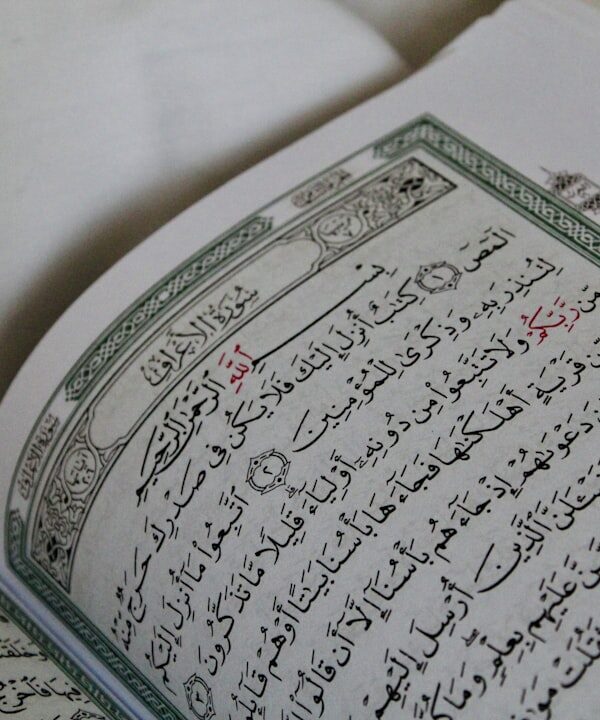 سُورَةُ الأَعْرَافِ
سُورَةُ الأَعْرَافِ
بِسْمِ ٱللَّهِ ٱلرَّحْمَٰنِ ٱلرَّحِيمِ
الٓمٓصٓ ١ كِتَٰبٌ أُنزِلَ إِلَيْكَ فَلَا يَكُن فِى صَدْرِكَ حَرَجٌ مِّنْهُ
لِتُنذِرَ بِهِۦ وَذِكْرَىٰ لِلْمُؤْمِنِينَ ٢ ٱتَّبِعُوا۟ مَآ أُنزِلَ إِلَيْكُم
مِّن رَّبِّكُمْ وَلَا تَتَّبِعُوا۟ مِن دُونِهِۦٓ أَوْلِيَآءَ ۗ قَلِيلًا مَّا تَذَكَّرُونَ ٣
مِّن قَرْيَةٍ أَهْلَكْنَٰهَا فَجَآءَهَا بَأْسُنَا بَيَٰتًا أَوْ هُمْ
دَعْوَىٰهُمْ إِذْ جَآءَهُم بَأْسُنَآ إِلَّآ أَن قَالُوٓا۟
ٱلَّذِينَ أُرْسِلَ إِلَيْهِمْ
عَلَيْهِم بِعِلْمٍ ۖ وَمَا